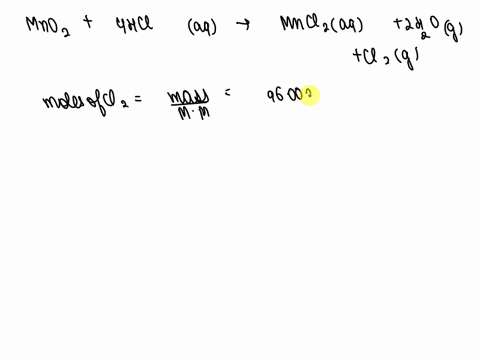 MnO2 + 4HCl (aq) → MnCl2(aq) + 2H2O (g)
+ Cl2(g)
moles of Cl2 = mass / M·M = 9600